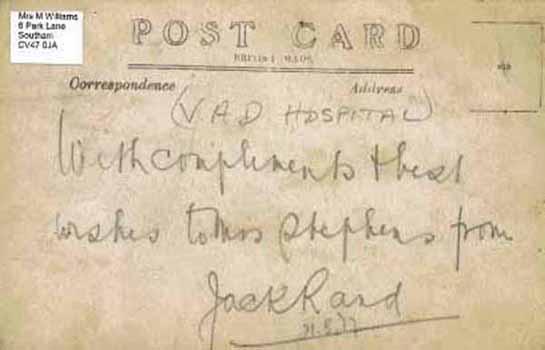 Mrs M Williams
6 Park Lane
Southam
CV47 0JA
POST CARD
BRITISH MADE
Correspondence
Address
(VAD HOSPITAL)
With compliments & best
wishes to Mrs Stephens from
Jack Rand